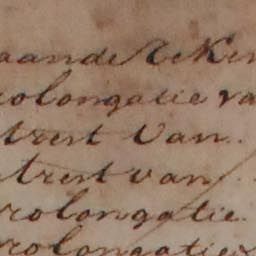 aande Reken
rolongatie va
trest Van
trest van
rolongatie
rolongatie